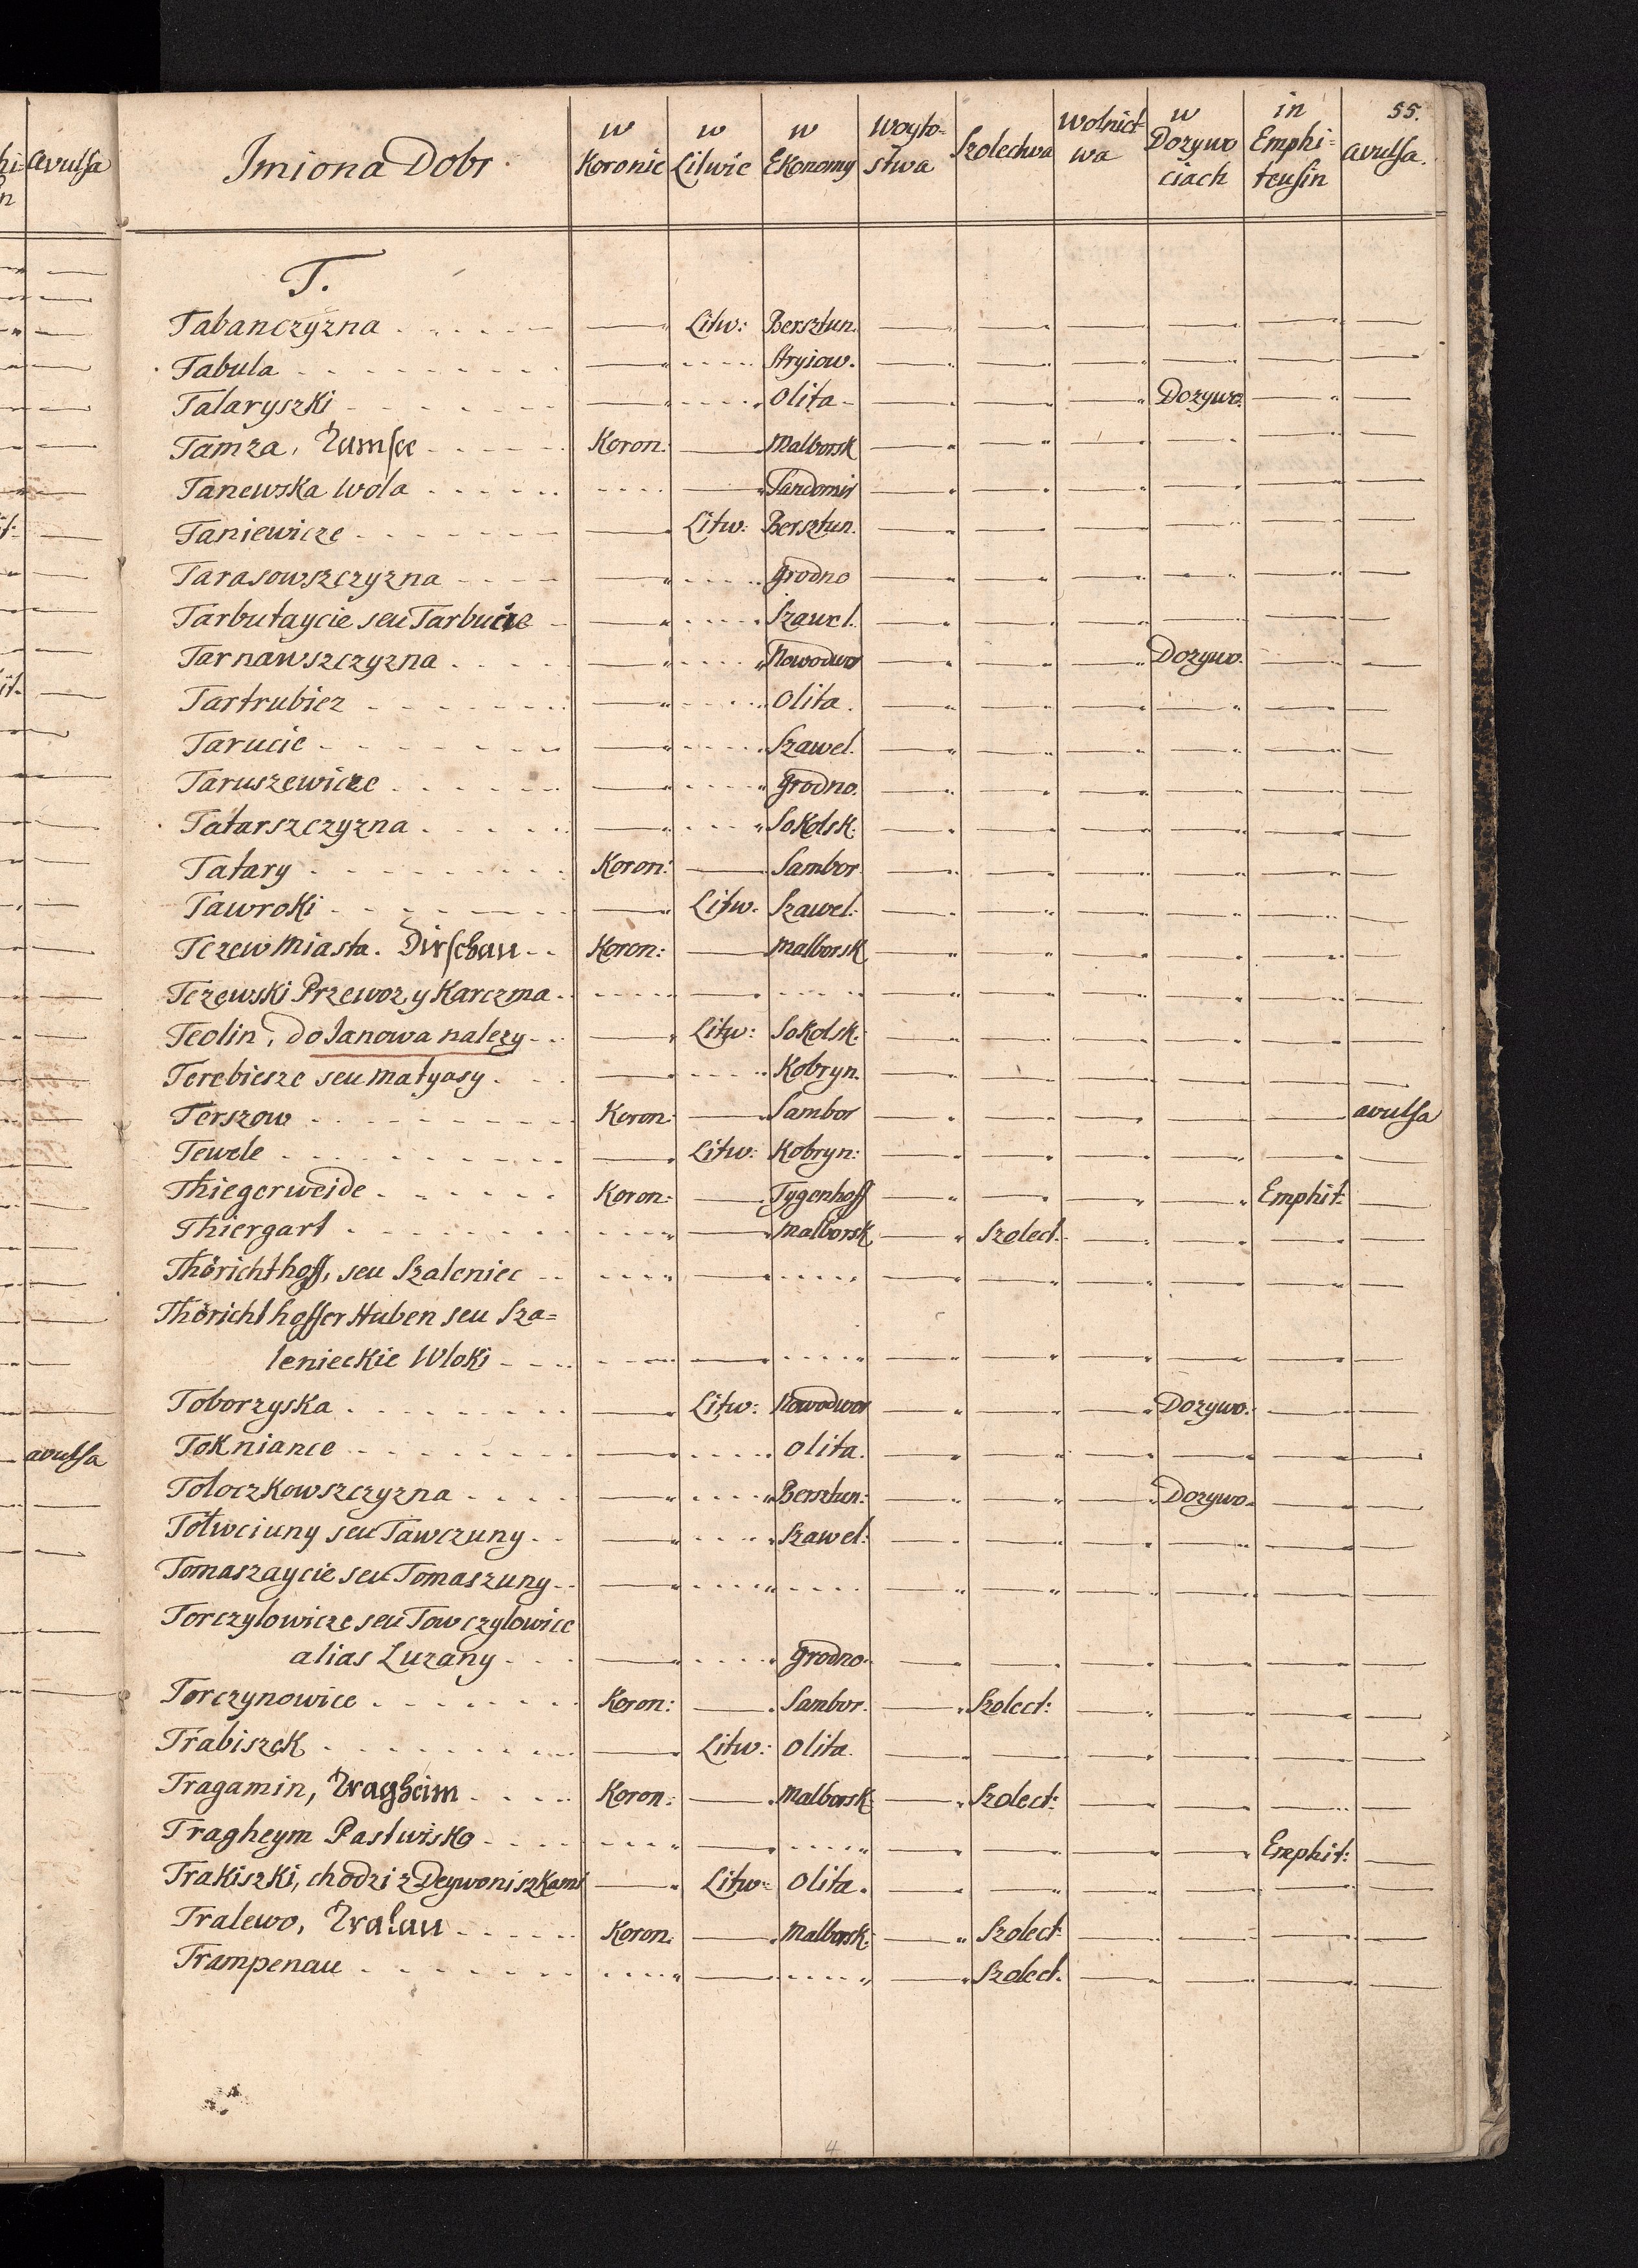 55.
Imiona Dobr. w Koronie w Litwie w Ekonomy Woyto-stwa Szolectwa Wolnict-wa w Dozywo ciach in Emphi-teusin avulsa.
T.
Tabanczyzna Litw: Bersztun.
Tabula Stryiow.
Talaryszki Olita Dozywo.
Tamza, Tamsee Koron: Malborsk
Tanewska Wola Sandomir
Taniewicze Litw: Bersztun.
Tarasowszczyzna Grodno
Tarbutaycie seu Tarbucie Szawel.
Tarnawszczyzna Nowodwo Dozywo.
Tartrubiez Olita.
Tarucie Szawel.
Taruszewicze Grodno.
Tatarszczyzna Sokolsk:
Tatary Koron: Sambor
Tawroki Litw: Szawel:
Tczew Miasta. Dirschau Koron: Malborsk
Tczewski Przewoz y Karczma
Teolin, do Janowa nalezy Litw: Sokolsk:
Terebiesze seu Matyasy Kobryn.
Terszow Koron: Sambor avulsa
Tewele Litw: Kobryn:
Thiegerweide Koron: Tygenhoff Emphit:
Thiergart Malborsk Szolect:
Thörichthoff, seu Szaleniec
Thörichthoffer Huben seu Sza=
lenieckie Wloki
Toborzyska Litw: Nowodwor Dozywo.
Tokniance Olita.
Toloczkowszczyzna Bersztun: Dozywo.
Totwciuny seu Tawczuny Szawel:
Tomaszaycie seu Tomaszuny
Torczylowicze seu Towczylowice
alias Luzany Grodno.
Torczynowice Koron: Sambor. Szolect:
Trabiszek Litw: Olita.
Tragamin, Tragheim Koron: Malborsk Szolect:
Tragheym Pastwisko Emphit:
Trakiszki, chodzi z Deywoniszkami Litw: Olita.
Tralewo, Tralau Koron. Malborsk: Szolect:
Trampenau Szolect.
4
avulsa
avulsa